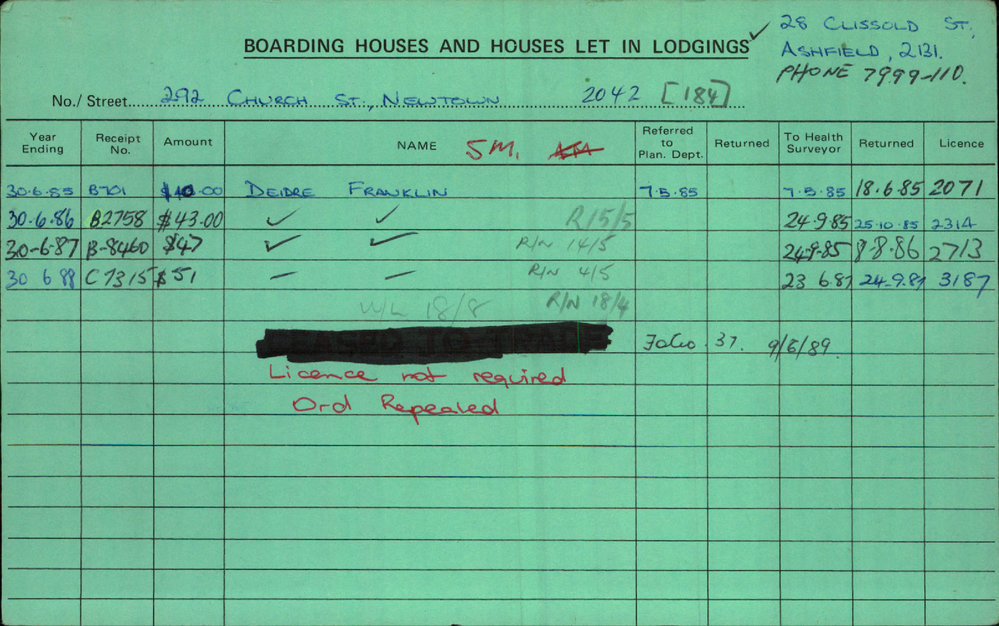 28 CLISSOLD ST,
BOARDING HOUSES AND HOUSES LET IN LODGINGS ✓
ASHFIELD, 2131.
PHONE 7999-110.
No./Street 292 CHURCH ST., NEWTOWN 2042 [184]
Year Ending Receipt No. Amount NAME 5 M. Referred to Plan. Dept. Returned To Health Surveyor Returned Licence
30.6.85 B701 $40.00 DEIDRE FRANKLIN 7.5.85 7.5.85 18.6.85 2071
30.6.86 B2758 $43.00 ✓ ✓ R15/5 24.9.85 25.10.85 2314
30-6-87 B-8460 $47 ✓ ✓ R/N 14/5 24.9.85 8-8.86 2713
30 6 88 C7315 $51 — — R/N 4/5 23 6.87 24.9.87 3187
W/L 18/8 R/N 18/4
CEASED TO TRADE Folio 37. 9/6/89.
Licence not required
Ord Repealed